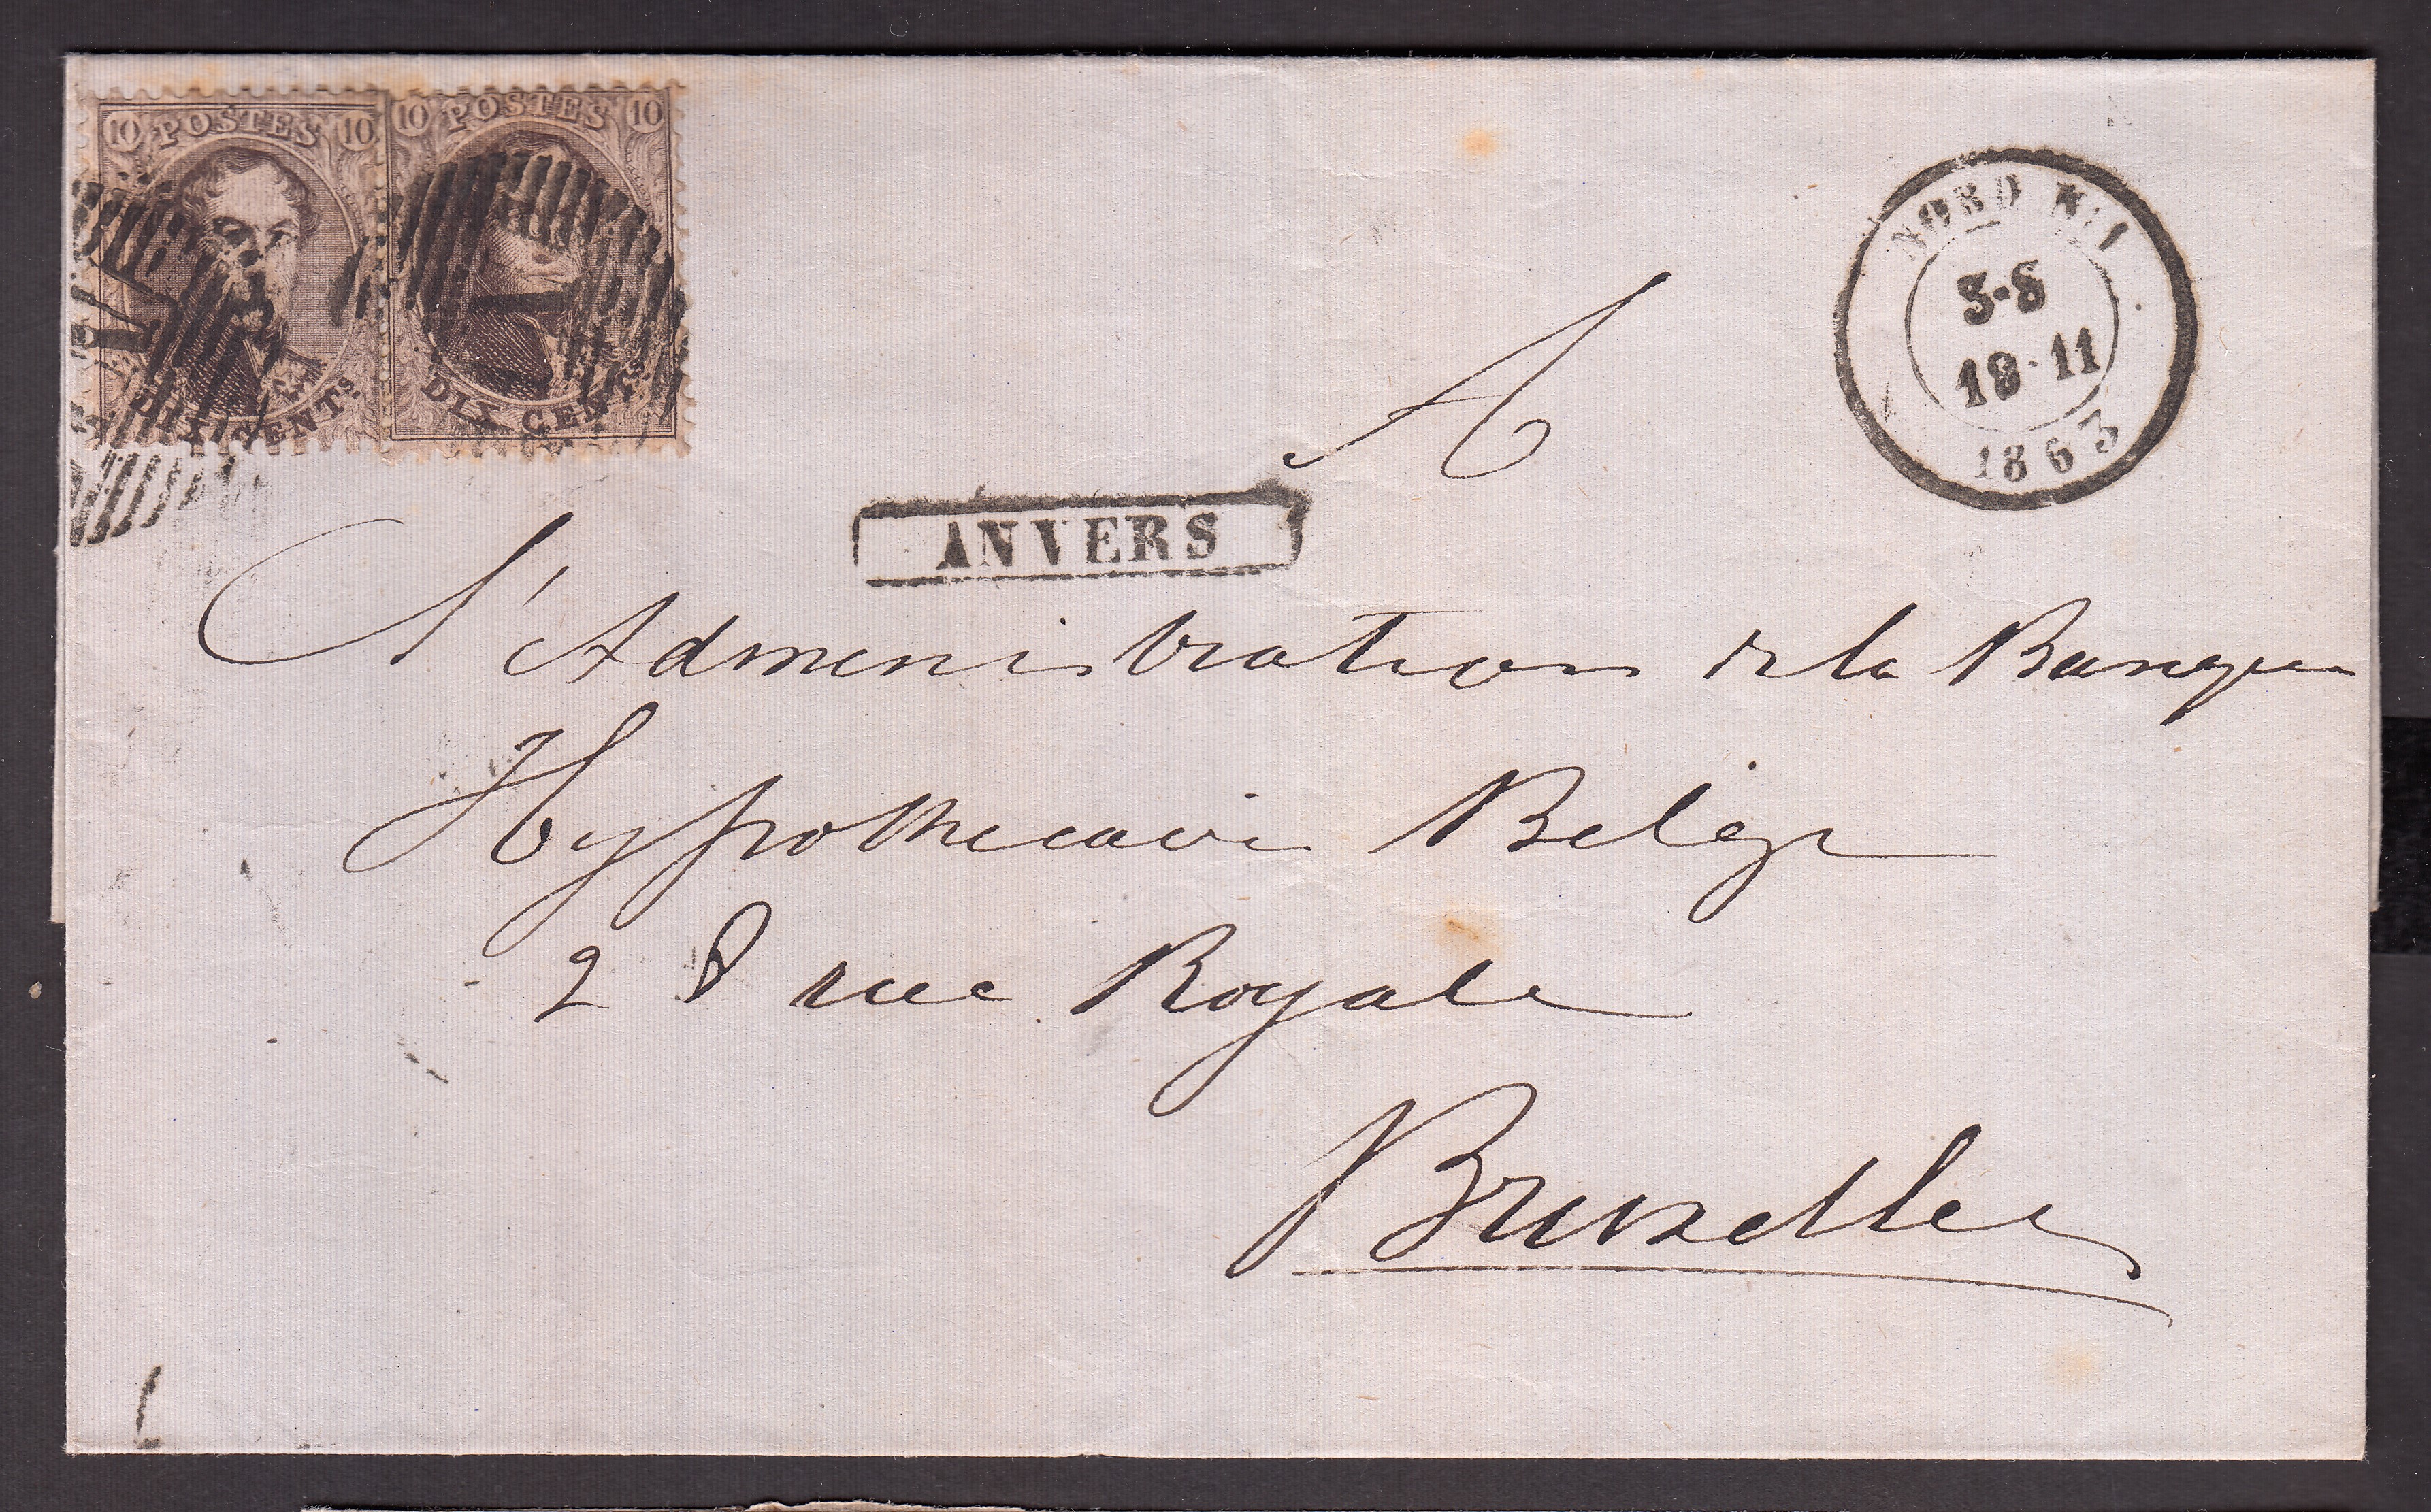 10 POSTES 10
DIX CENTS.
10 POSTES 10
DIX CENTS.
NORD No 1
3-S
19·11
1863
A
ANVERS
l'Administration de la Banque
Hypothecaire Belge
28 rue Royale
Bruxelles